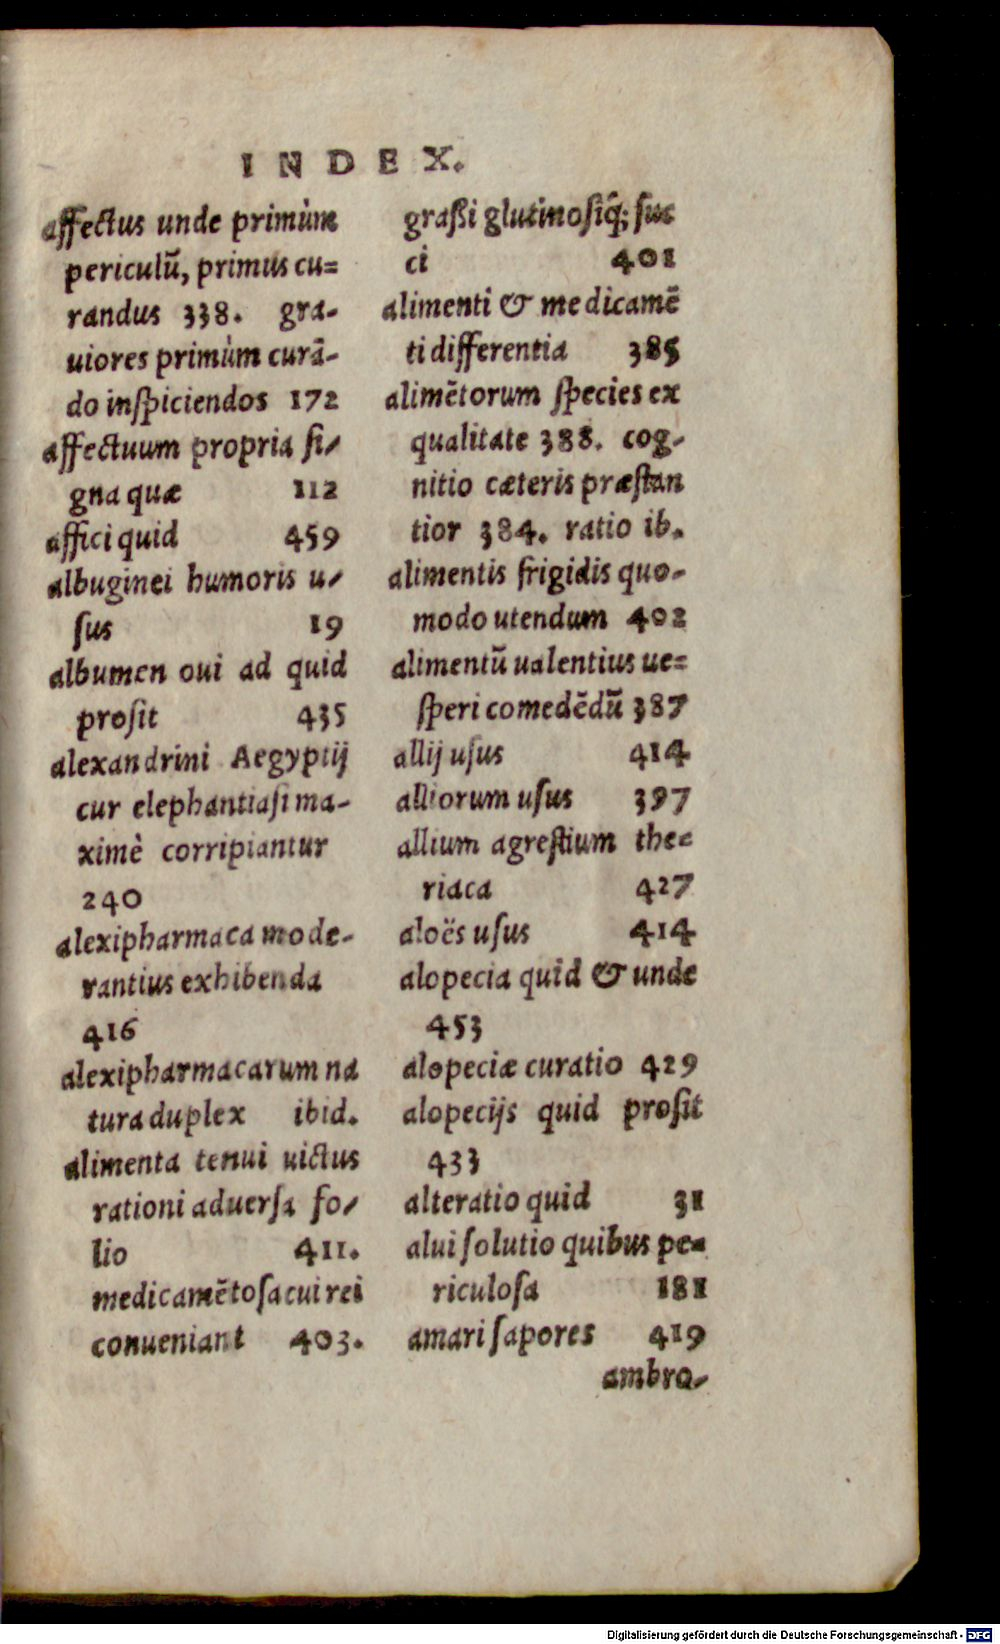 INDEX.
affectus unde primùm
periculũ, primus cu=
randus 338. gra-
uiores primùm curã-
do inſpiciendos 172
affectuum propria ſi-
gna quæ 112
affici quid 459
albuginei humoris u-
ſus 19
albumen oui ad quid
proſit 435
alexandrini Aegyptij
cur elephantiaſi ma-
ximè corripiantur
240
alexipharmaca mode-
rantius exhibenda
416
alexipharmacarum na
tura duplex ibid.
alimenta tenui uictus
rationi aduerſa fo-
lio 411.
medicamẽtoſa cui rei
conueniant 403.
graßi glutinoſiq́; ſuc
ci 401
alimenti & medicamẽ
ti differentia 385
alimẽtorum ſpecies ex
qualitate 388. cog-
nitio cæteris præſtan
tior 384. ratio ib.
alimentis frigidis quo-
modo utendum 402
alimentũ ualentius ue=
ſperi comedẽdũ 387
allij uſus 414
alliorum uſus 397
allium agreſtium the=
riaca 427
aloës uſus 414
alopecia quid & unde
453
alopeciæ curatio 429
alopecijs quid proſit
433
alteratio quid 31
alui ſolutio quibus pe=
riculoſa 181
amari ſapores 419
ambro-
Digitalisierung gefördert durch die Deutsche Forschungsgemeinschaft - DFG